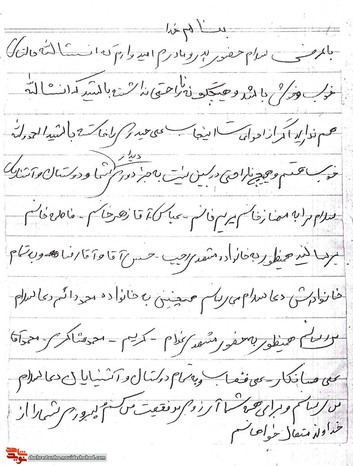 بنام خدا
با عرض سلام حضور پدر و مادرم امیدوارم که انشاالله حالتان
خوب و خوش باشد و هیچگونه ناراحتی نداشته باشید که انشاالله
هم ندارید اگر از احوالات اینجانب علی حیدری خواسته باشید الحمدلله
خوب هستم و هیچ ناراحتی در بین نیست به جز دوری دیدار شما و دوستان و آشنایان
سلام مرا به ممتاز خانم مریم خانم - عباس آقا زهرا خانم - فاطمه خانم
برسانید همینطور به خانواده مشهدی حبیب - حسن آقا و آقا رضا و به تمام
خانواده‌شان دعا سلام می‌رسانم همچنین به خانواده محمود دائم دعا سلام
می‌رسانم همینطور به حضور مشهدی غلام - کریم - محمد شاکری - محمد آقا
علی - علی و به تمام دوستان و آشنایان دعا سلام
می‌رسانم و برای همه شما آرزوی موفقیت می‌کنم و پیروزی شما را از
خداوند متعال خواهانم